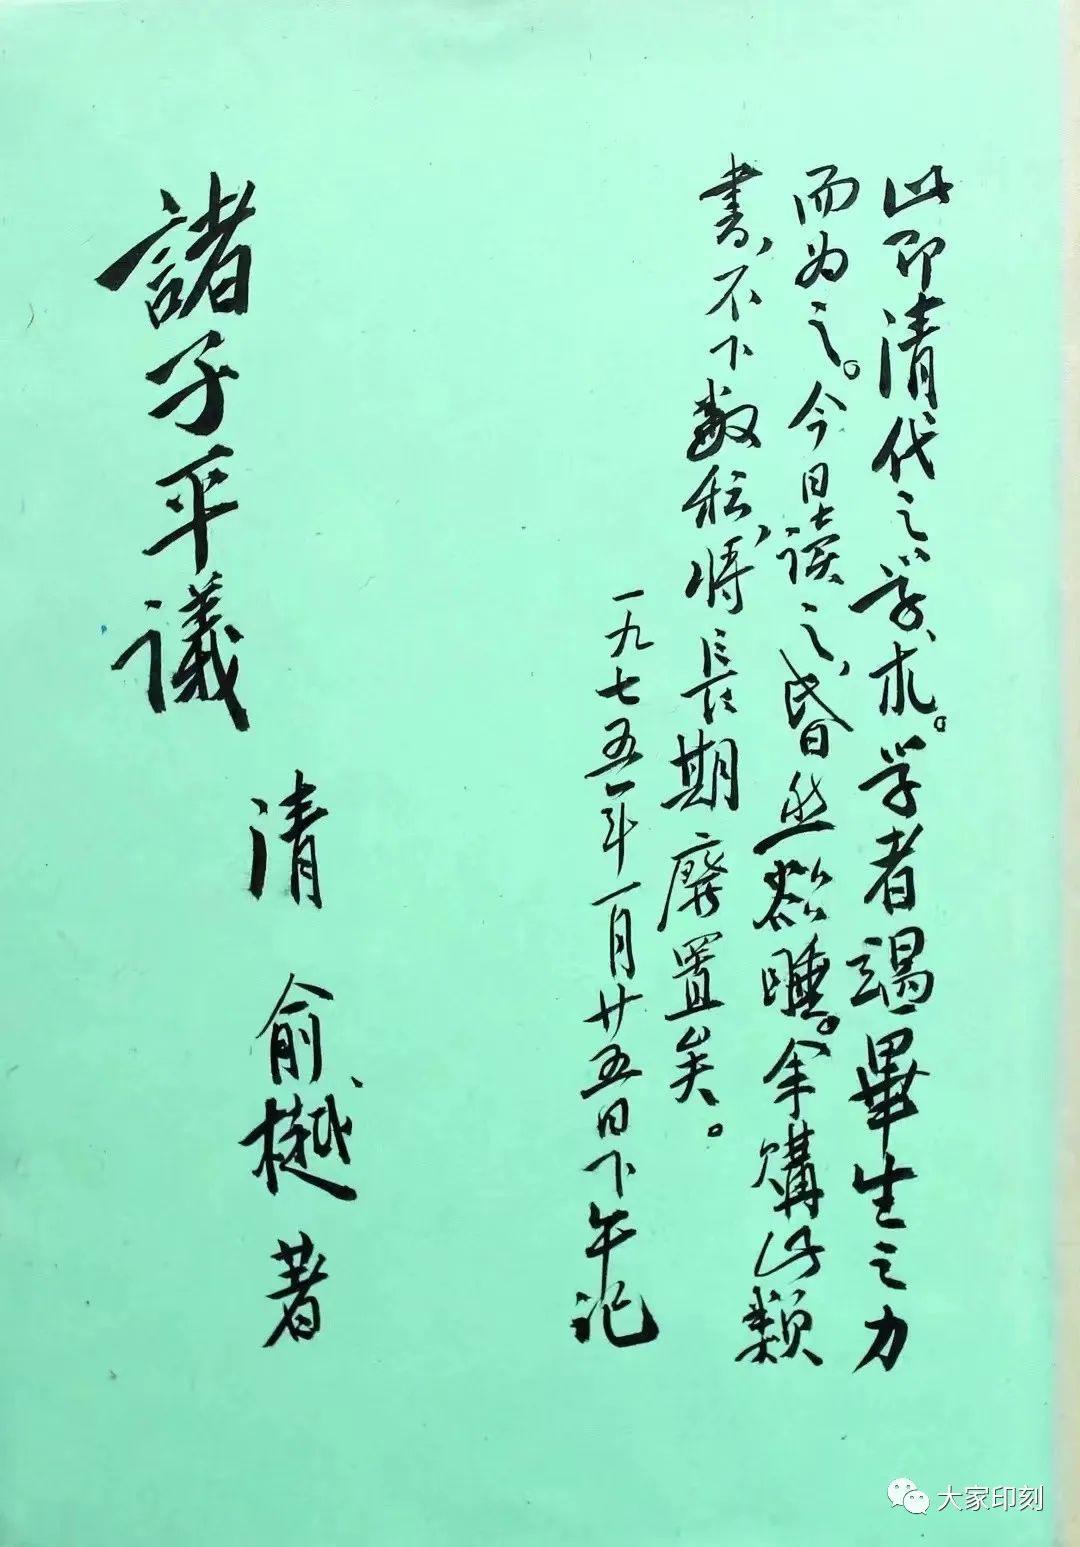 此即清代之学术。学者竭畢生之力
而为之。今日读之，昏然欲睡。余購此類
書，不下数种，将長期廢置矣。
一九七五年一月廿五日下午记
諸子平議
清 俞樾 著
大家印刻